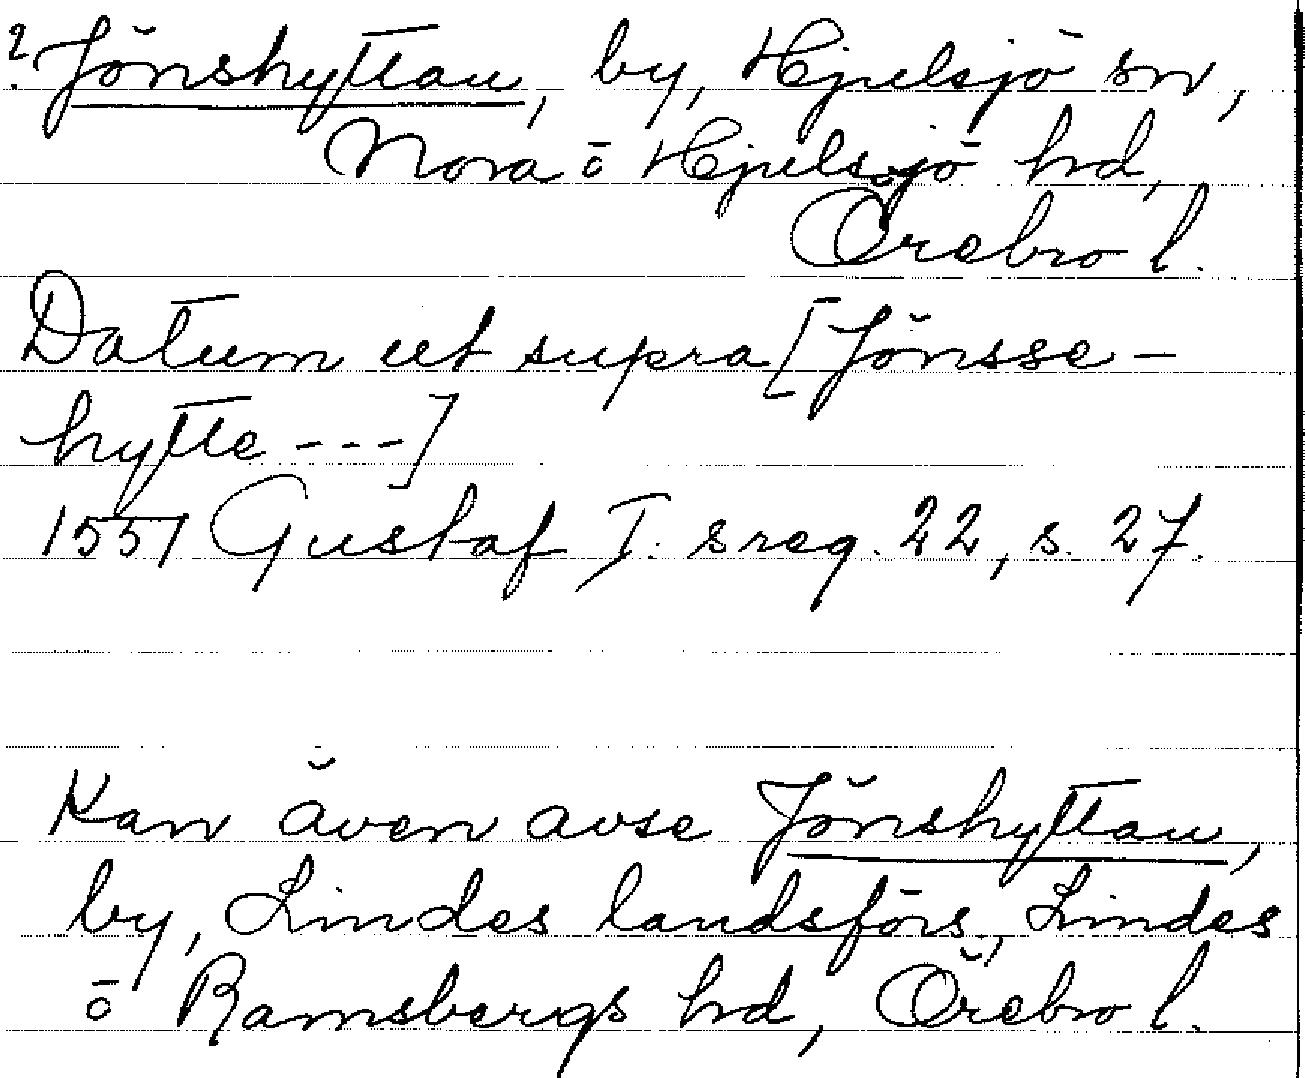 ? Jönshyttan, by, Hjulsjö sn,
Nora o Hjulsjö hd,
Örebro l.
Datum ut supra [Jönsse-
hytte ---]
1551 Gustaf I. s reg. 22, s. 27.
Kan även avse Jönshyttan,
by, Lindes landsförs., Lindes
o Ramsbergs hd, Örebro l.